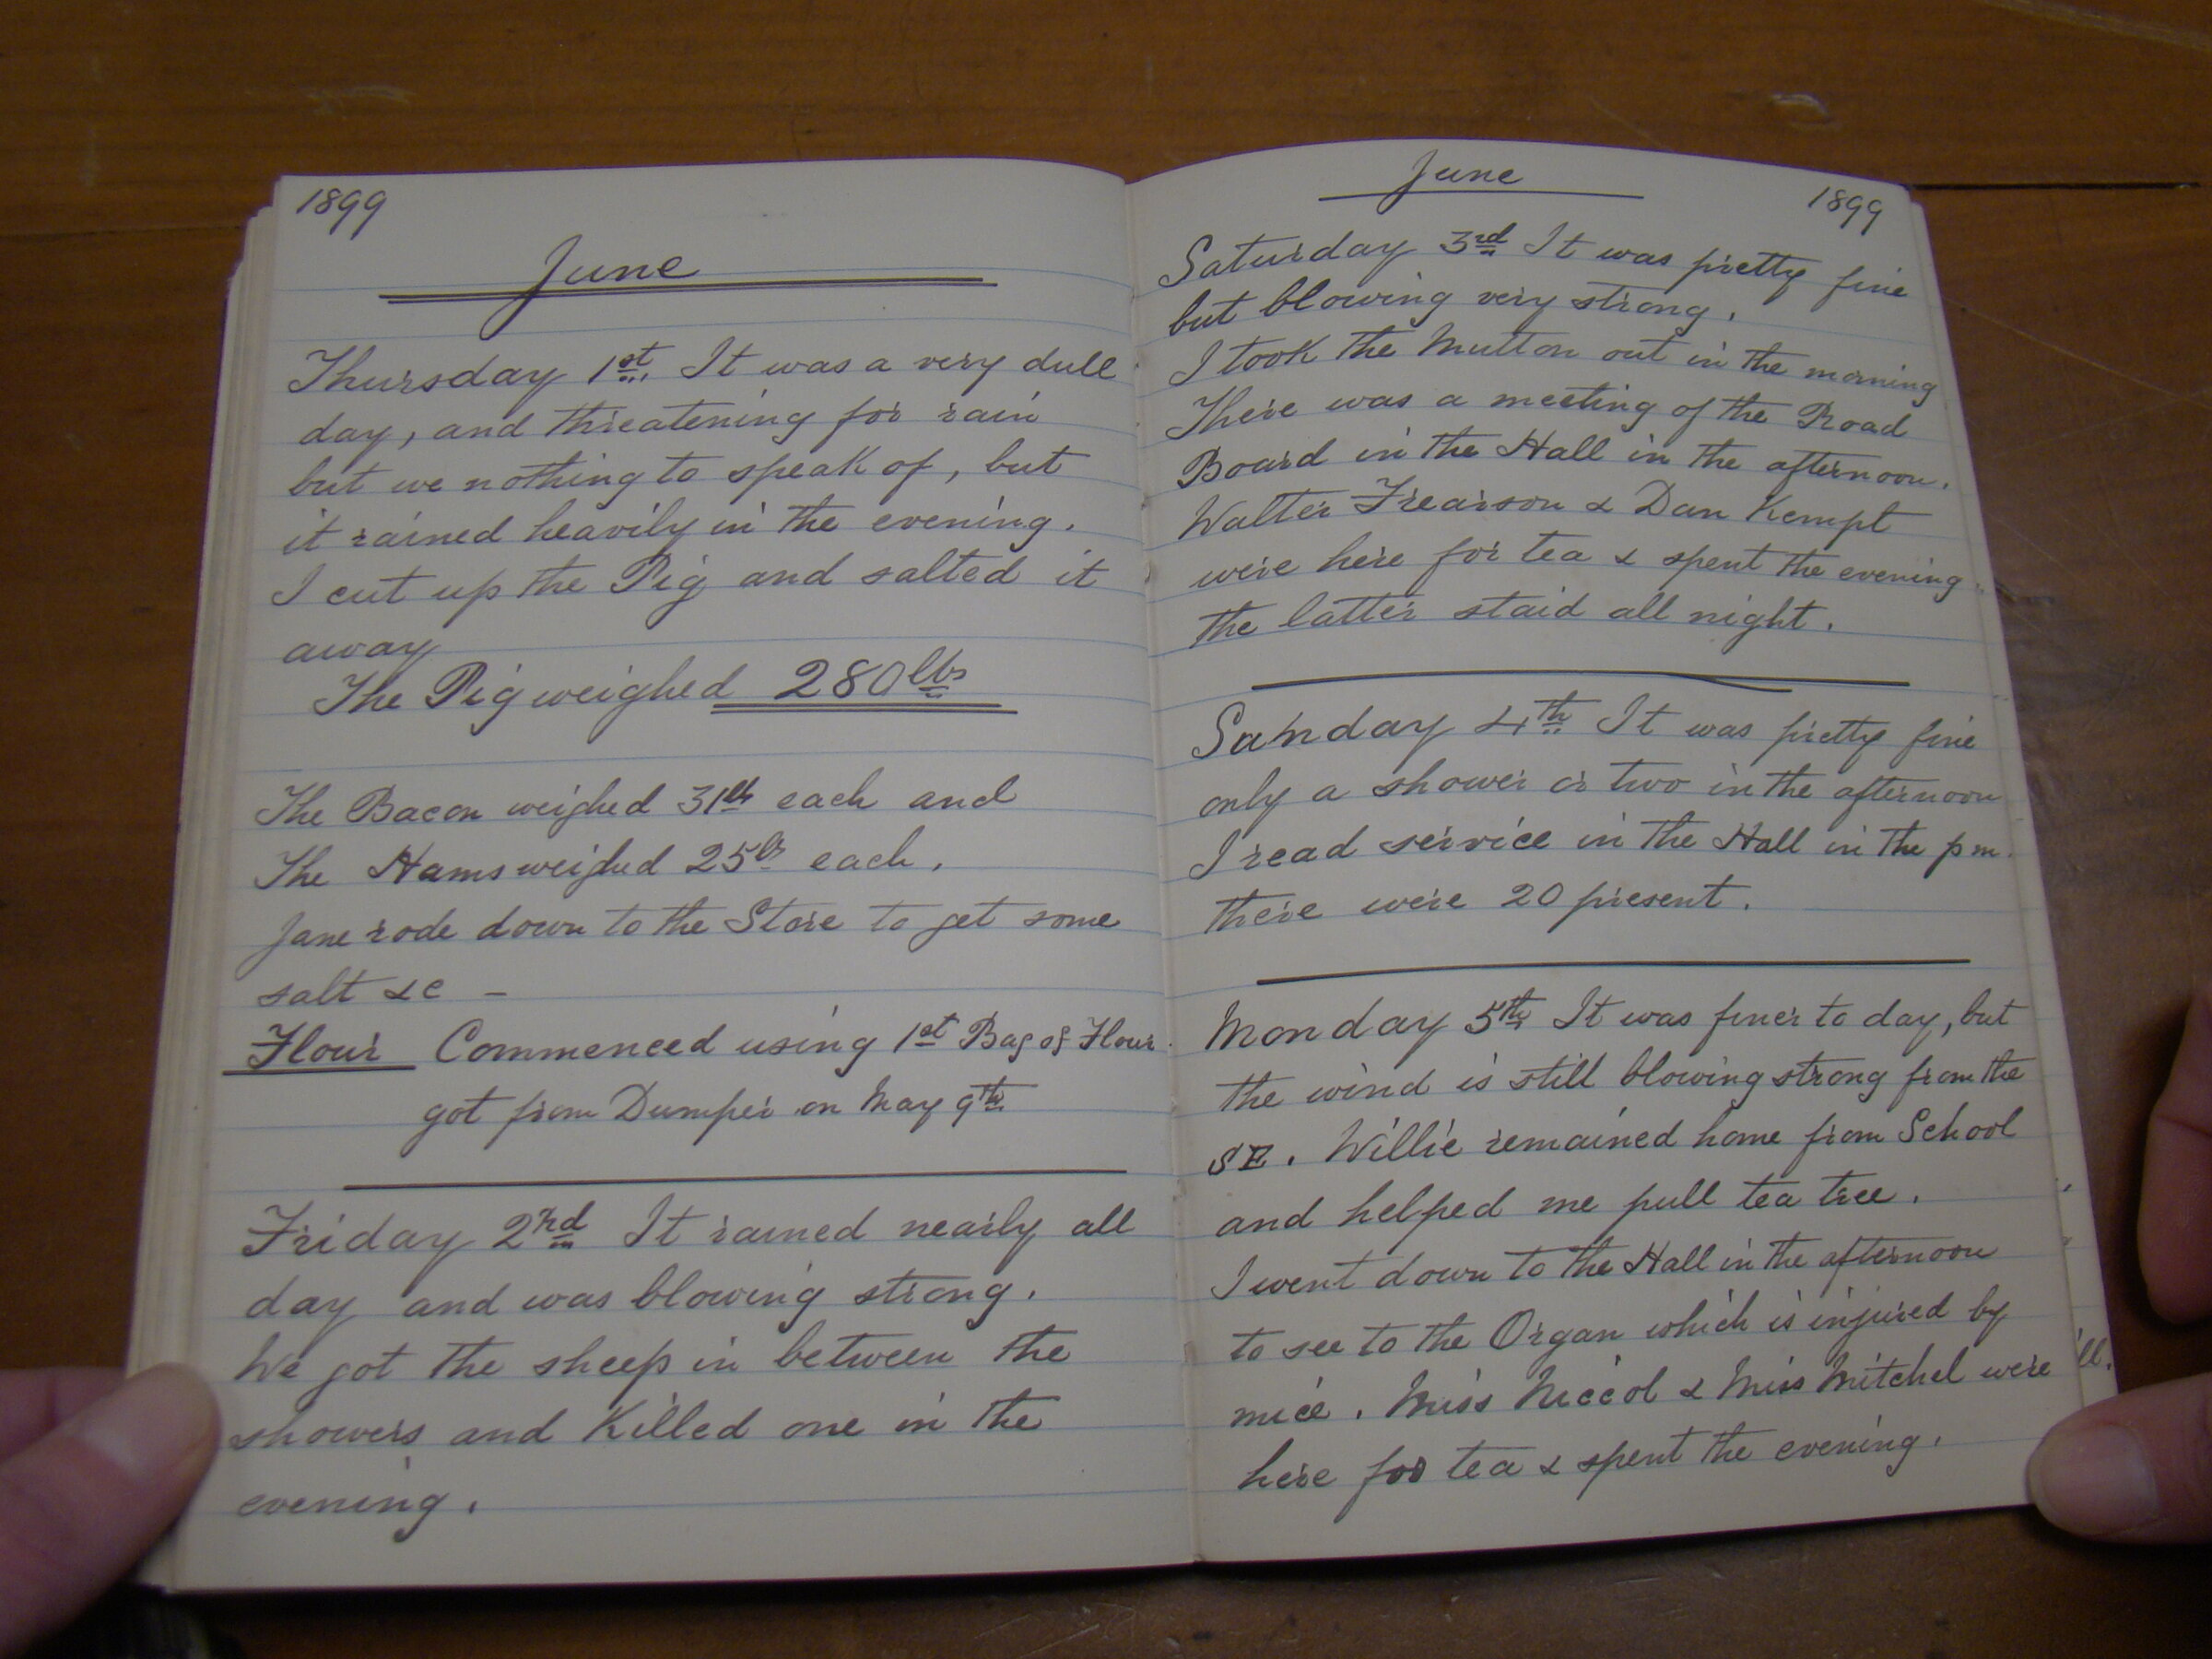 1899
June
Thursday 1st. It was a very dull
day, and threatening for rain
but we nothing to speak of, but
it rained heavily in the evening.
I cut up the Pig and salted it
away
The Pig weighed 280 lbs
The Bacon weighed 31 lb each and
The Hams weighed 25 lb each.
Jane rode down to the Store to get some
salt &c –
Flour Commenced using 1st Bag of Flour
got from Dumper on May 9th
Friday 2nd It rained nearly all
day and was blowing strong.
We got the sheep in between the
showers and Killed one in the
evening.
June
1899
Saturday 3rd It was pretty fine
but blowing very strong.
I took the Mutton out in the morning
There was a meeting of the Road
Board in the Hall in the afternoon.
Walter Frearson & Dan Kempt
were here for tea & spent the evening
the latter staid all night.
Sunday 4th It was pretty fine
only a shower or two in the afternoon
I read service in the Hall in the pm.
there were 20 present.
Monday 5th It was finer to day, but
the wind is still blowing strong from the
SE. Willie remained home from School
and helped me pull tea tree.
I went down to the Hall in the afternoon
to see to the Organ which is injured by
mice. Miss Niccol & Miss Mitchel were
here for tea & spent the evening.
'll.